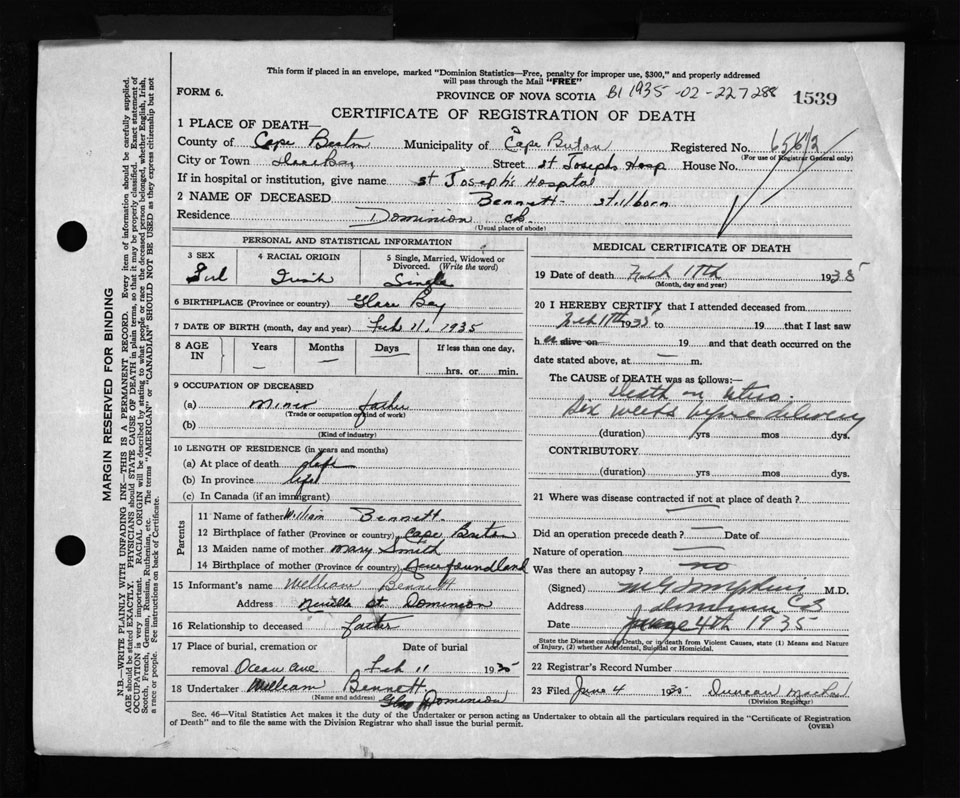 This form if placed in an envelope, marked "Dominion Statistics—Free, penalty for improper use, $300," and properly addressed
will pass through the Mail "FREE"
FORM 6.
PROVINCE OF NOVA SCOTIA B1 1935-02-227288 1539
CERTIFICATE OF REGISTRATION OF DEATH
1 PLACE OF DEATH—
County of Cape Breton Municipality of Cape Breton Registered No. 6562
(For use of Registrar General only)
City or Town Street St Josephs Hosp House No.
If in hospital or institution, give name St Joseph's Hospital
2 NAME OF DECEASED Bennett - stillborn
Residence Dominion CB
(Usual place of abode)
PERSONAL AND STATISTICAL INFORMATION
3 SEX 4 RACIAL ORIGIN 5 Single, Married, Widowed or
Divorced. (Write the word)
Girl Irish Single
6 BIRTHPLACE (Province or country) Glace Bay
7 DATE OF BIRTH (month, day and year) Feb 11, 1935
8 AGE
IN
Years Months Days If less than one day,
hrs. or min.
9 OCCUPATION OF DECEASED
(a) Miner father
(Trade or occupation or kind of work)
(b)
(Kind of industry)
10 LENGTH OF RESIDENCE (in years and months)
(a) At place of death
(b) In province life
(c) In Canada (if an immigrant)
Parents
11 Name of father William Bennett
12 Birthplace of father (Province or country) Cape Breton
13 Maiden name of mother Mary Smith
14 Birthplace of mother (Province or country) Newfoundland
15 Informant's name William Bennett
Address Neville St. Dominion
16 Relationship to deceased father
17 Place of burial, cremation or Date of burial
removal Ocean Ave Feb 11 1935
18 Undertaker William Bennett
(Name and address) Dominion
MEDICAL CERTIFICATE OF DEATH
19 Date of death Feb 11th 1935
(Month, day and year)
20 I HEREBY CERTIFY that I attended deceased from
Feb 11th 1935 to 19 that I last saw
h er alive on 19 and that death occurred on the
date stated above, at — m.
The CAUSE of DEATH was as follows:—
Death in utero.
Six weeks before delivery
(duration) yrs mos dys.
CONTRIBUTORY
(duration) yrs. mos. dys.
21 Where was disease contracted if not at place of death?
Did an operation precede death? Date of
Nature of operation
Was there an autopsy? no
(Signed) M.D.
Address Dominion CB
Date June 4th 1935
State the Disease causing Death, or in death from Violent Causes, state (1) Means and Nature
of Injury, (2) whether Accidental, Suicidal or Homicidal.
22 Registrar's Record Number
23 Filed June 4 1935 Duncan
(Division Registrar)
Sec. 46—Vital Statistics Act makes it the duty of the Undertaker or person acting as Undertaker to obtain all the particulars required in the "Certificate of Registration
of Death" and to file the same with the Division Registrar who shall issue the burial permit.
(OVER)
MARGIN RESERVED FOR BINDING
N.B.—WRITE PLAINLY WITH UNFADING INK—THIS IS A PERMANENT RECORD. Every item of information should be carefully supplied.
AGE should be stated EXACTLY. PHYSICIANS should STATE CAUSE OF DEATH in plain terms, so that it may be properly classified. Exact statement of
OCCUPATION is very important. RACIAL ORIGIN will be described by stating to what people or race the deceased person belonged, whether English, Irish,
Scotch, French, German, Russian, Ruthenian, etc. The terms "AMERICAN" or "CANADIAN" SHOULD NOT BE USED as they express citizenship but not
a race or people. See instructions on back of Certificate.